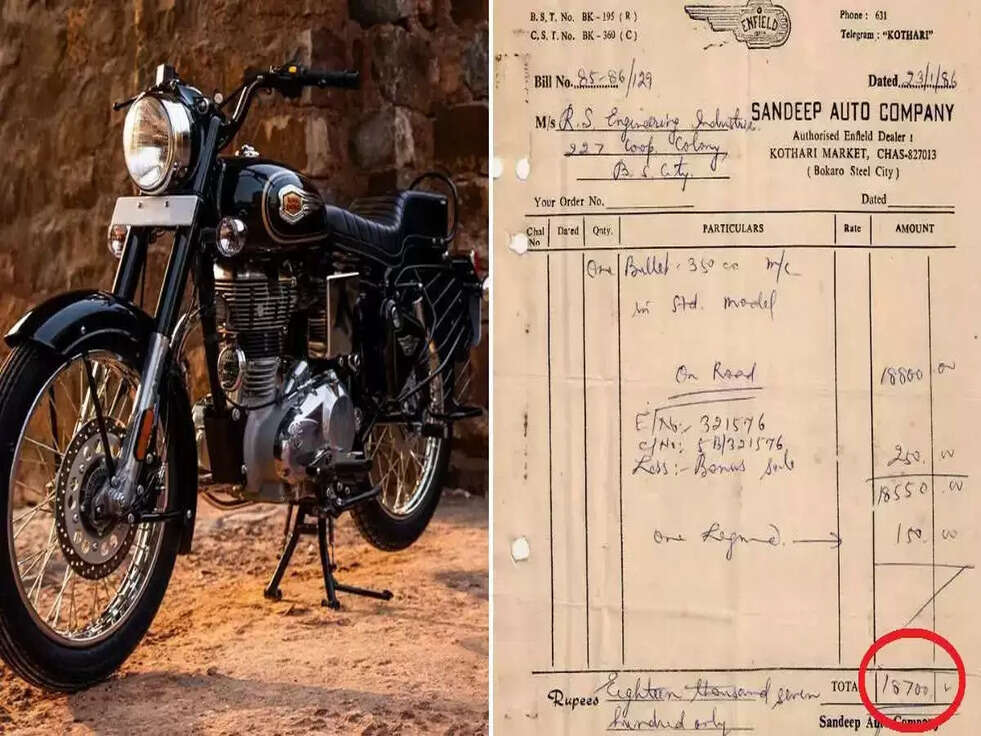 B. S. T. No. BK - 195 ( R )
C. S. T. No. BK - 360 ( C )
ENFIELD
Phone : 631
Telegram : "KOTHARI"
Bill No. 85-86/129
Dated 23/1/86
M/s R. S. Engineering Industries.
227 Coop. Colony,
B. S. City.
SANDEEP AUTO COMPANY
Authorised Enfield Dealer :
KOTHARI MARKET, CHAS-827013
( Bokaro Steel City )
Your Order No.
Dated
Chal No Dated Qnty. PARTICULARS Rate AMOUNT
One Bullet - 350 cc m/c
in Std. model
On Road 18800 00
E/No:- 321576
C/No:- 5B/321576
Less :- Bonus 250. 00
18550 .00
One 150. 00
TOTA 18700
Rupees Eighteen thousand seven
hundred only
Sandeep Auto Company